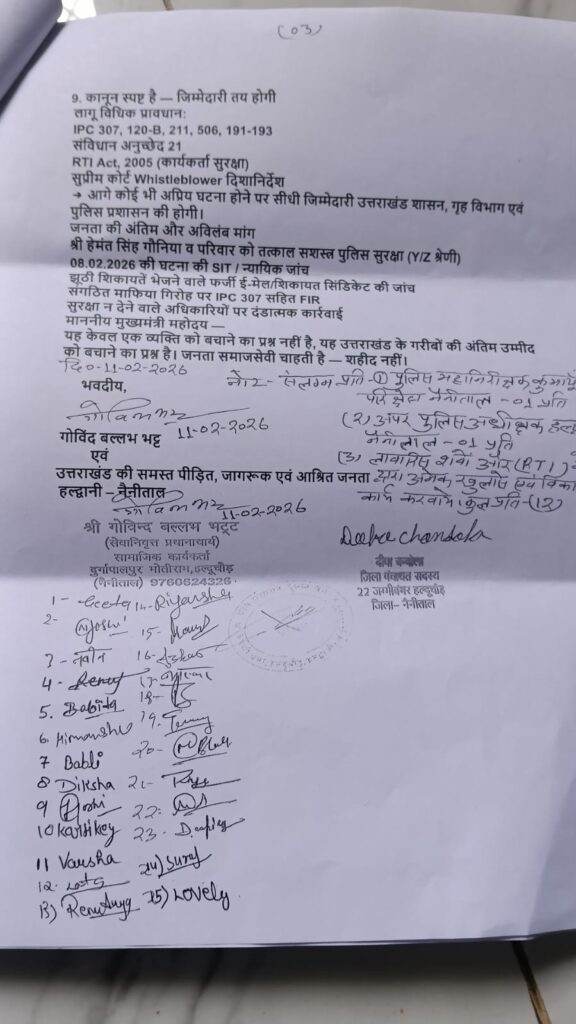 (03)
9. कानून स्पष्ट है — जिम्मेदारी तय होगी
लागू विधिक प्रावधान:
IPC 307, 120-B, 211, 506, 191-193
संविधान अनुच्छेद 21
RTI Act, 2005 (कार्यकर्ता सुरक्षा)
सुप्रीम कोर्ट Whistleblower दिशानिर्देश
→ आगे कोई भी अप्रिय घटना होने पर सीधी जिम्मेदारी उत्तराखंड शासन, गृह विभाग एवं
पुलिस प्रशासन की होगी।
जनता की अंतिम और अविलंब मांग
श्री हेमंत सिंह गौनिया व परिवार को तत्काल सशस्त्र पुलिस सुरक्षा (Y/Z श्रेणी)
08.02.2026 की घटना की SIT / न्यायिक जांच
झूठी शिकायतें भेजने वाले फर्जी ई-मेल/शिकायत सिंडिकेट की जांच
संगठित माफिया गिरोह पर IPC 307 सहित FIR
सुरक्षा न देने वाले अधिकारियों पर दंडात्मक कार्रवाई
माननीय मुख्यमंत्री महोदय —
यह केवल एक व्यक्ति को बचाने का प्रश्न नहीं है, यह उत्तराखंड के गरीबों की अंतिम उम्मीद
को बचाने का प्रश्न है। जनता समाजसेवी चाहती है — शहीद नहीं।
दि०-11-02-2026
भवदीय,
नोट- संलग्न प्रति-① पुलिस महानिरीक्षक कुमाऊँ
परिक्षेत्र नैनीताल - 01 प्रति
(2) अपर पुलिस अधीक्षक
नैनीताल - 01 प्रति
(3) लावारिस शवों और (RTI)
द्वारा अनेक खुलासे एवं
कार्य करवाये। कुल प्रति-(12)
11-02-2026
गोविंद बल्लभ भट्ट
एवं
उत्तराखंड की समस्त पीड़ित, जागरूक एवं आश्रित जनता
हल्द्वानी – नैनीताल
11-02-2026
श्री गोविन्द बल्लभ भट्ट
(सेवानिवृत्त प्रधानाचार्य)
सामाजिक कार्यकर्ता
दुर्गापालपुर मोतीराम, हल्दूचौड़
(नैनीताल) 9760624326
Deepa Chandola
दीपा चन्दोला
जिला पंचायत सदस्य
22 जग्गीबंगर हल्दूचौड़
जिला- नैनीताल
1- Geeta
2- Joshi
3- नवीन
4-
5. Babita
6 Himanshu
7 Babli
8 Diksha
9 Joshi
10 Kartikey
11 Varsha
12-
13)
14-
15-
16-
17-
18-
19.
20-
21-
22-
23-
24) Suraj
25) Lovely